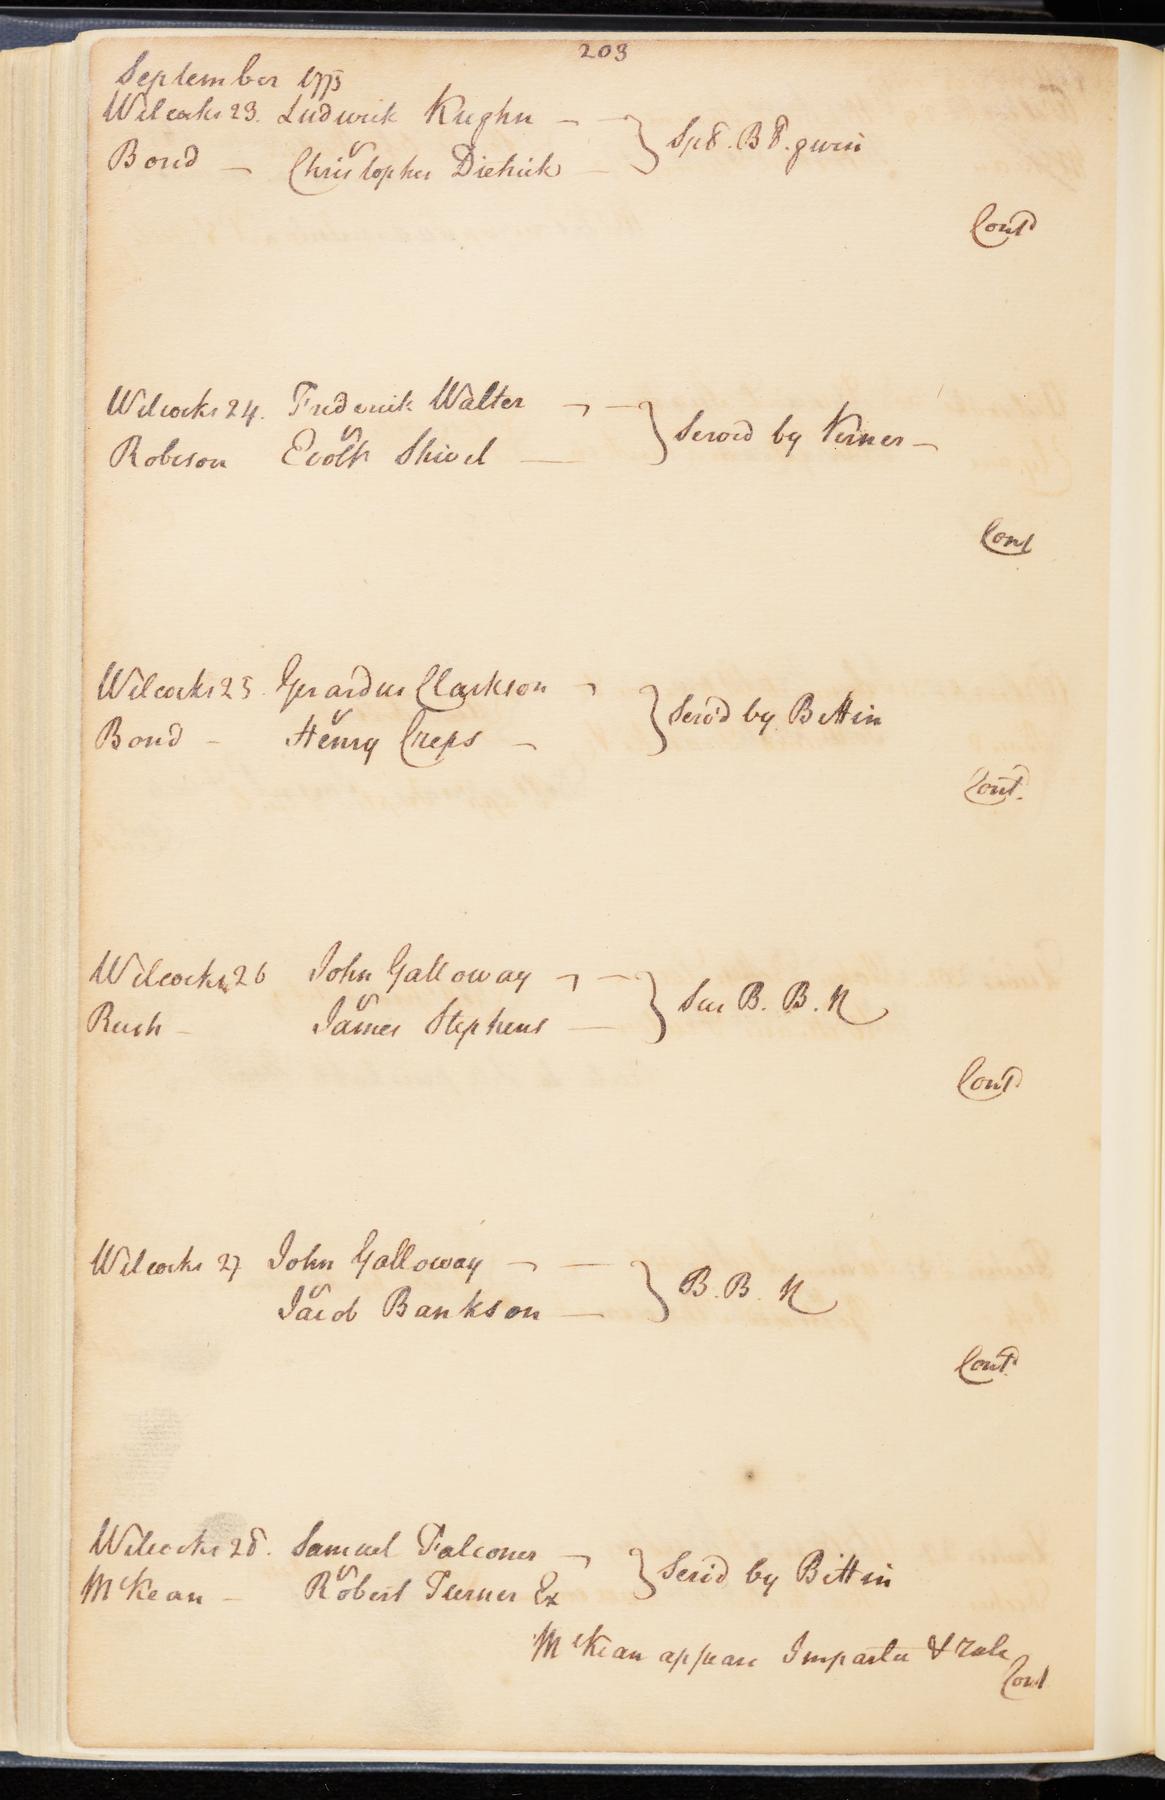 203
September 1775
Wilcocks 23. Ludwick Kughn
v
Bond Christopher Dietrick } Spl. B. given
Contd
Wilcocks 24. Frederick Walter
v
Robeson Evolt Shivel } Servd by Verner
Cont
Wilcocks 25. Gerardus Clarkson
v
Bond Henry Creps } Servd by Bittin
Cont.
Wilcocks 26 John Galloway
v
Rush James Stephens } Sur B. B. N
Contd
Wilcocks 27 John Galloway
v
Jacob Bankson } B. B. N
Contd
Wilcocks 28. Samuel Falconer
v
McKean Robert Turner Ex } Servd by Bittin
McKean appears Imparlee & rule
Cont